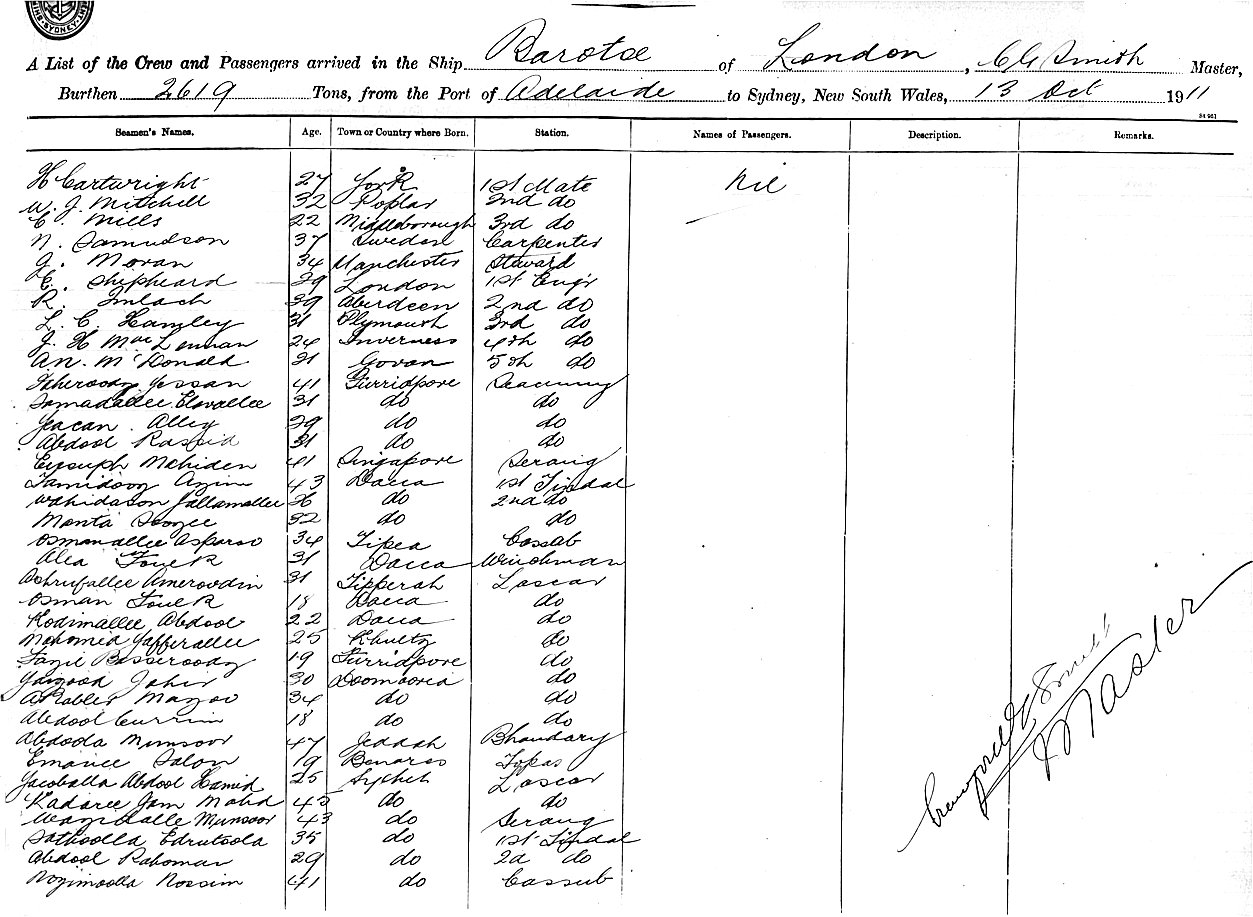 SYDNEY
A List of the Crew and Passengers arrived in the Ship Barotse of London, C G Smith Master,
Burthen 2619 Tons, from the Port of Adelaide to Sydney, New South Wales, 13 Oct 1911
Seamen's Names. Age. Town or Country where Born. Station. Names of Passengers. Description. Remarks.
H Cartwright 27 York 1st Mate Nil
W. J. Mitchell 32 Poplar 2nd do
C. Mills 22 Middleborough 3rd do
N. Samuelson 37 Sweden Carpenter
J. Moran 34 Manchester Steward
E. Shepheard 39 London 1st Engr
R. Imlach 39 Aberdeen 2nd do
L. C. Hamley 31 Plymouth 3rd do
J. H MacLennan 24 Inverness 4th do
A N. McDonald 21 Govan 5th do
Jessan 41 Furridpore Seacunny
Samadallee Elavallee 31 do do
Alley 39 do do
Abdool Rassid 31 do do
Eusuph Mohiden 41 Singapore Serang
Tamidoory Azim 43 Dacca 1st Tindal
Wahidason Jallamallee 2nd do
Manta 32 do do
Osmanallee 34 Cassab
Alea Foulk 31 Dacca Winchman
Ashrufallee Ameroodin 31 Tipperah Lascar
Osman Foulk 18 Dacca do
Kodimallee Abdool 22 Dacca do
Mahomed Gafferallee 25 do
Fazil Basseroody 19 Furridpore do
30 do
34 do do
Abdool Currim 18 do do
Abdoola Munsoor 47 Jeddah Bhandary
Emamee Salon 19 Benares Topas
Yacoballa Abdool Hamid 25 Sylhet Lascar
Kadaree Jam Mahd 45 do do
Munsoor 43 do Serang
Edrutoola 35 do 1st Tindal
Abdool Rahoman 29 do 2d do
Nozimoolla Nossim 41 do Cassub
Smith
Master